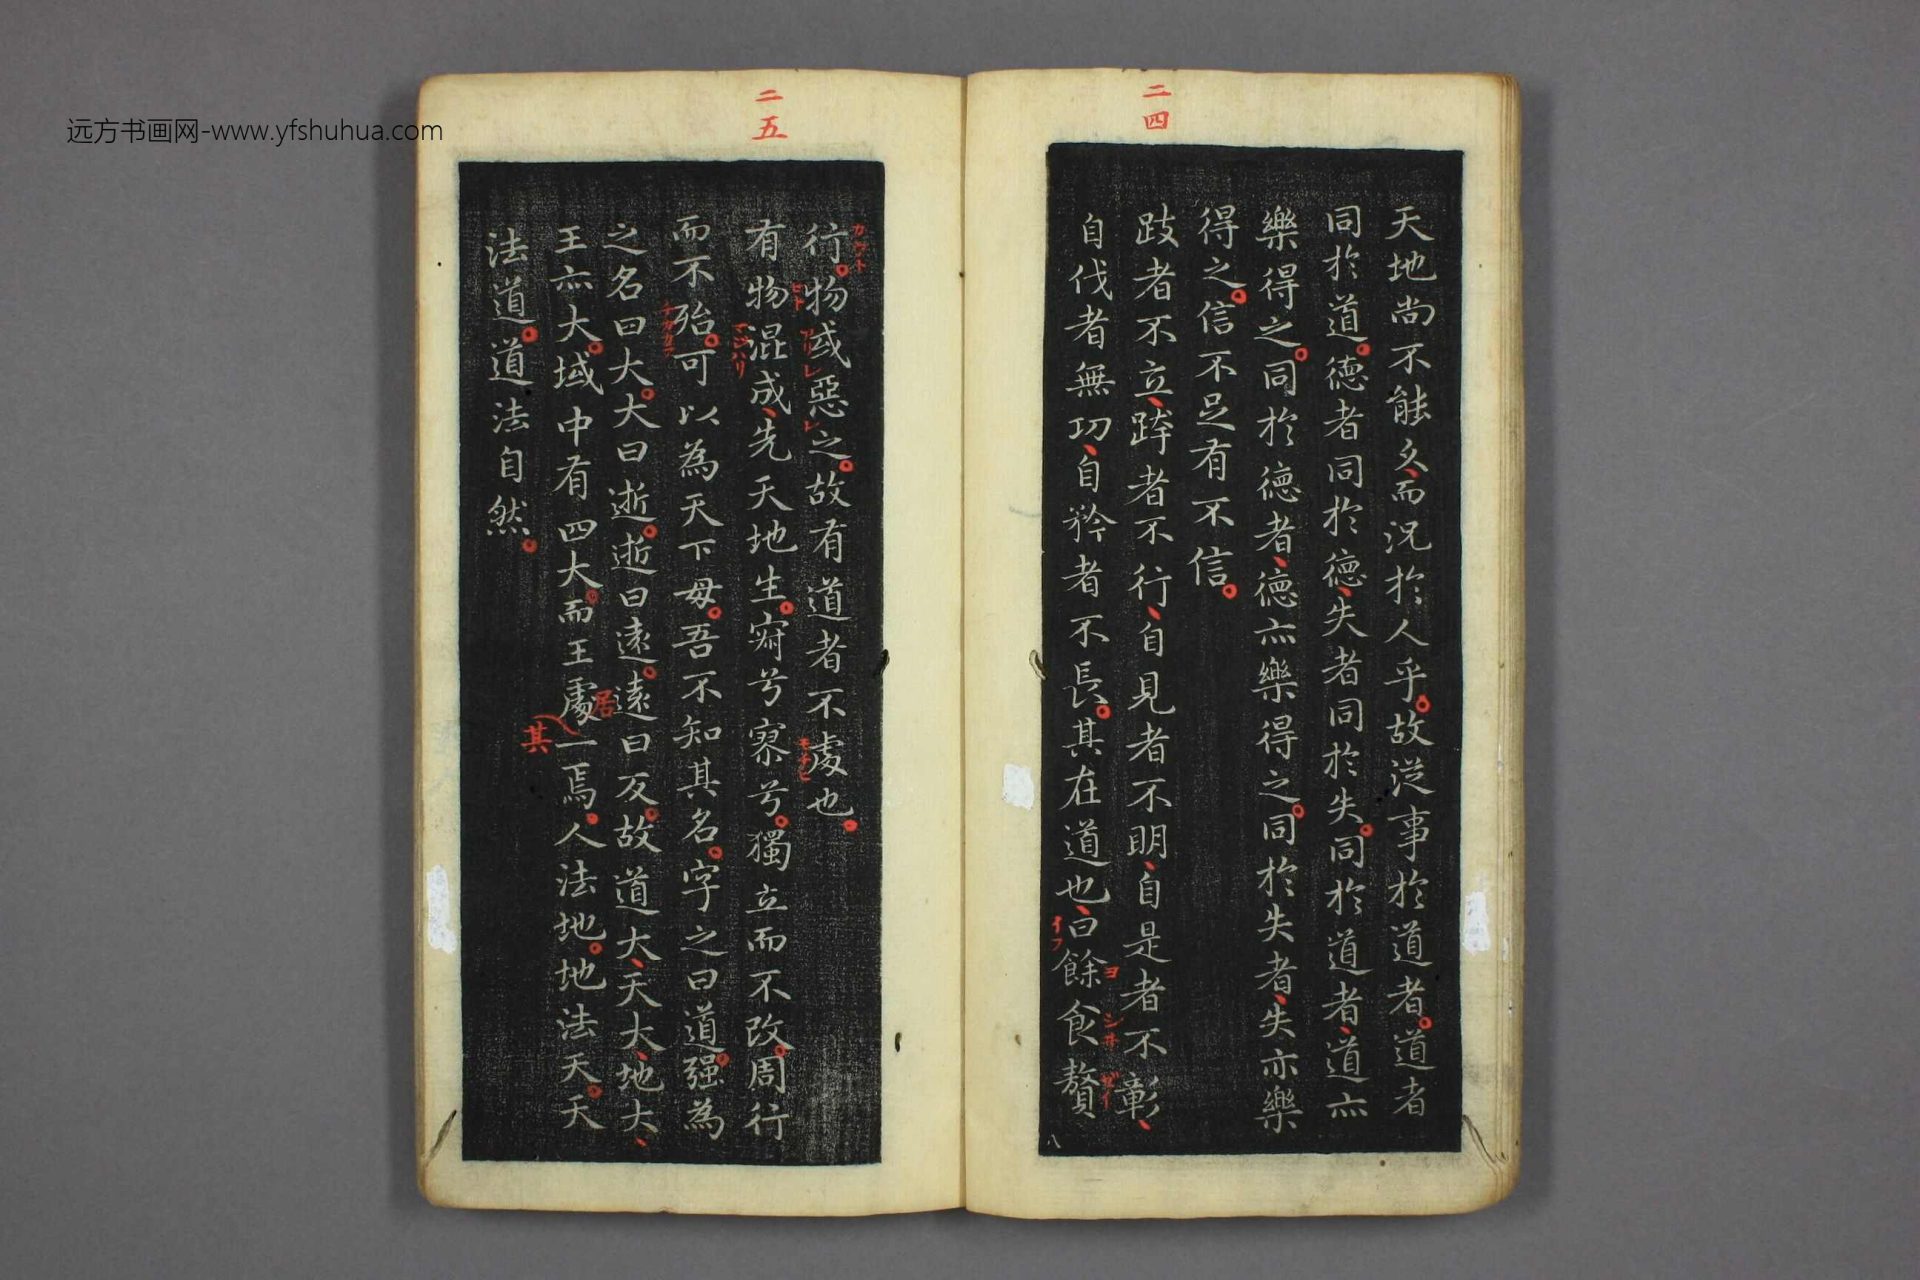 远方书画网-www.yfshuhua.com
二四
天地尚不能久、而況於人乎。故従事於道者。道者
同於道。德者同於德、失者同於失。同於道者、道亦
樂得之。同於德者、德亦樂得之。同於失者、失亦樂
得之。信不足有不信。
跂者不立、跨者不行、自見者不明、自是者不彰、
自伐者無功、自矜者不長。其在道也、曰餘食贅
イフ
ヨ
シヰ
ゼイ
八
二五
行。物或惡之。故有道者不處也。
カウ
ト
モチヒ
有物混成、先天地生。寂兮寥兮。獨立而不改。周行
而不殆。可以為天下母。吾不知其名。字之曰道。强為
之名曰大。大曰逝。逝曰遠。遠曰反。故道大、天大、地大、
王亦大。域中有四大。而王處一焉。人法地。地法天。天
居
其
法道。道法自然。